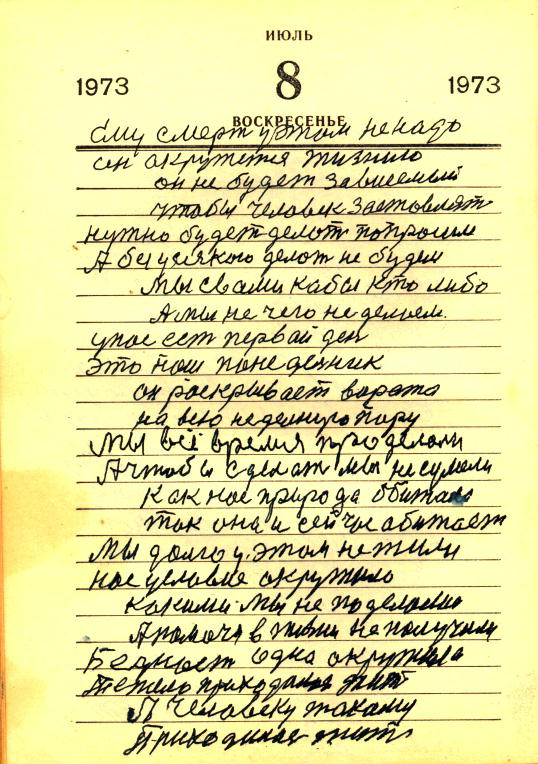 ИЮЛЬ
1973 8 1973
ВОСКРЕСЕНЬЕ
Ему смерт у этом не надо
он окружется жизнию
он не будет зависемый
чтобы человек заставлят
нужно будет делот попросим
А без усякого делот не будем
Мы свами кабы кто либо
А мы не чего не делаем.
унас ест первай ден
это наш понеделник
он раскрывает ворота
на всю неделную пору
Мы всё время проделоли
А чтобы сделат мы не сумели
Как нас природа обитала
так она и сейчас обитает
Мы долго у этом не жили
нас условие окружило
какими мы не поделовые
А помочи в жизни не получили
Бедност одна окружила
тежело приходилос жит
А Человеку такому
Приходилос жит